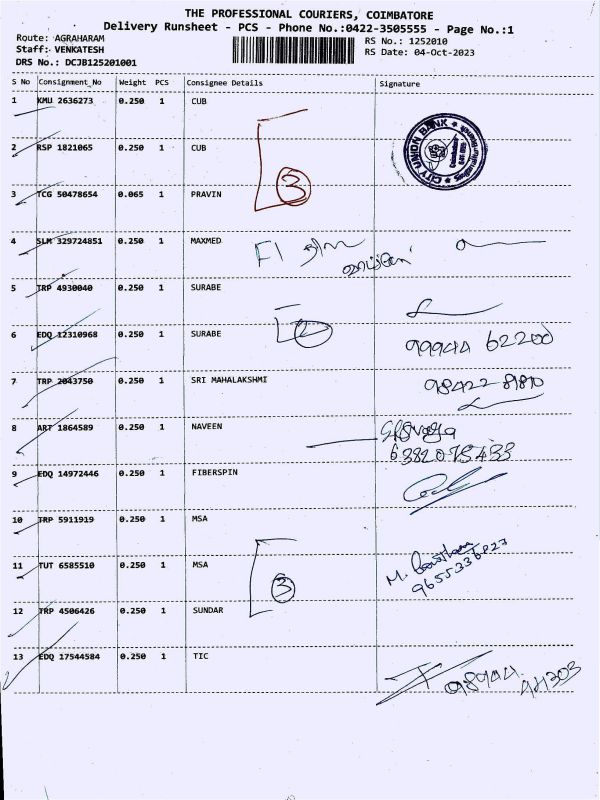 THE PROFESSIONAL COURIERS, COIMBATORE
Delivery Runsheet - PCS - Phone No.:0422-3505555 - Page No.:1
Route: AGRAHARAM
RS No.: 1252010
Staff: VENKATESH
RS Date: 04-Oct-2023
DRS No.: DCJB125201001
S No Consignment_No Weight PCS Consignee Details Signature
1 KMU 2636273 0.250 1 CUB
CITY UNION BANK
2 RSP 1821065 0.250 1 CUB
3
3 TCG 50478654 0.065 1 PRAVIN
4 SLM 329724851 0.250 1 MAXMED
5 TRP 4930040 0.250 1 SURABE
2
6 EDQ 12310968 0.250 1 SURABE
99944 62200
7 TRP 2043750 0.250 1 SRI MAHALAKSHMI
8 ART 1864589 0.250 1 NAVEEN
9 EDQ 14972446 0.250 1 FIBERSPIN
10 TRP 5911919 0.250 1 MSA
11 TUT 6585510 0.250 1 MSA
3
12 TRP 4506426 0.250 1 SUNDAR
13 EDQ 17544584 0.250 1 TIC